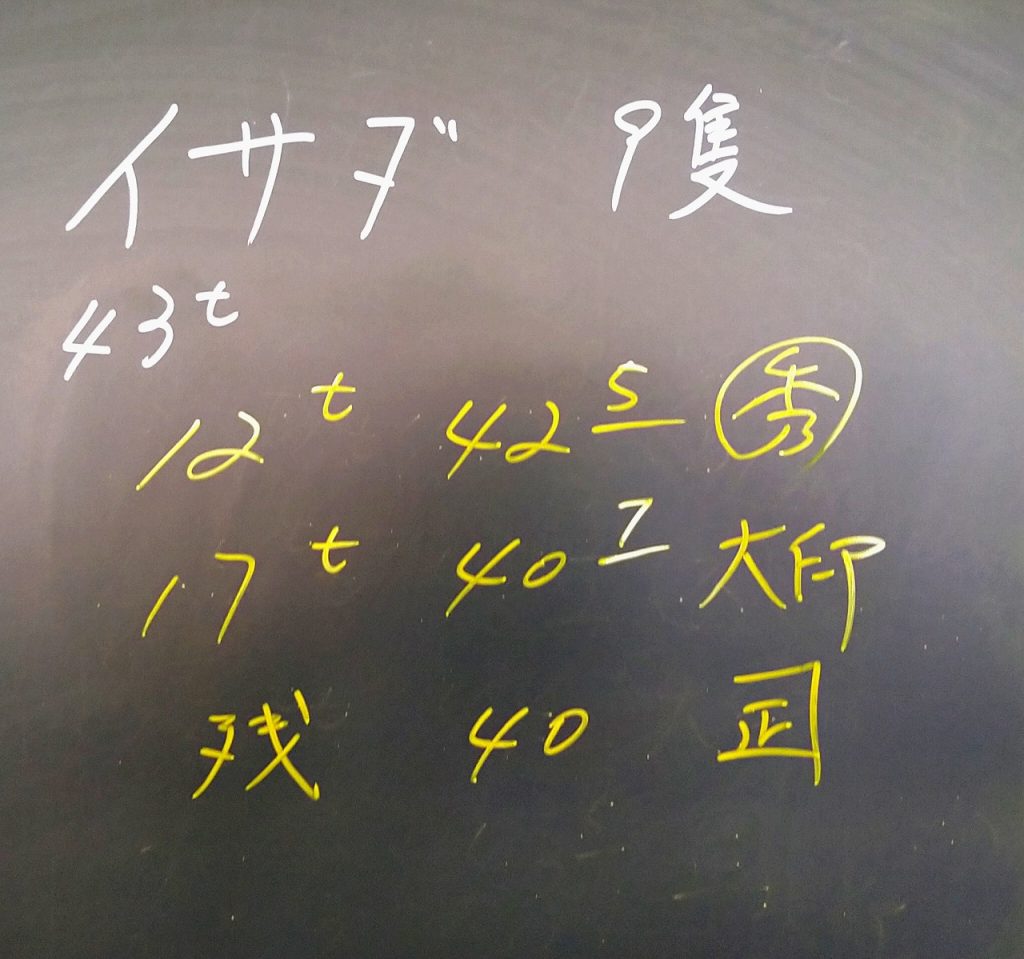 イサダ 9隻
43t
12t 42 5 秀
17t 40 7 大印
残 40 正